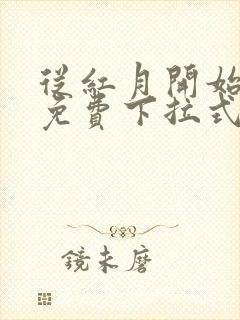 從紅月開始
免費下拉式
鏡未磨